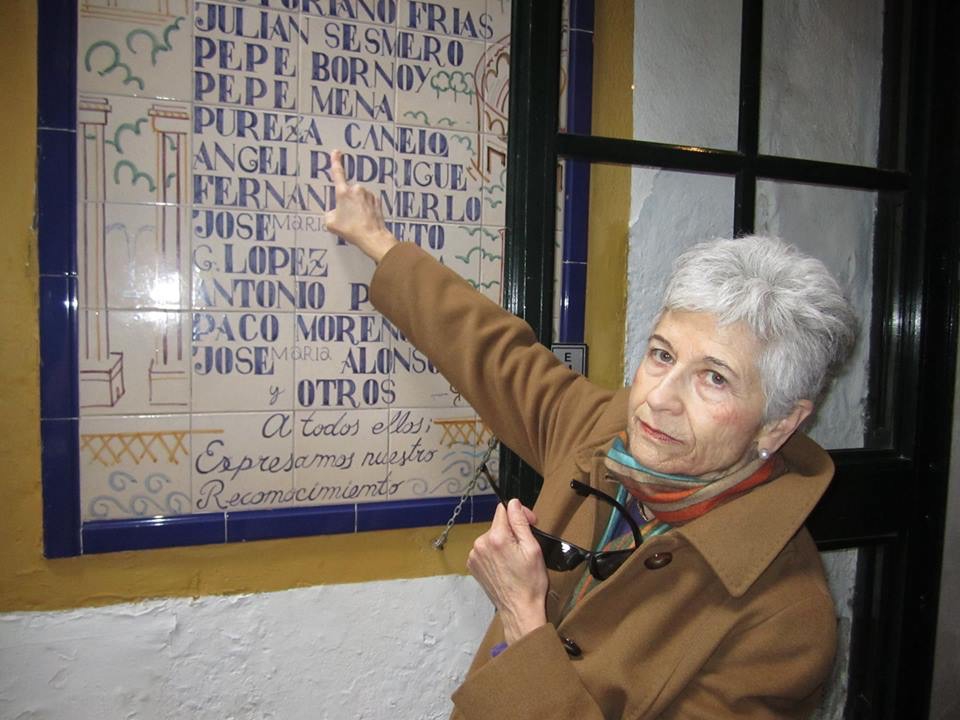 FRIAS
JULIAN SESMERO
PEPE BORNOY
PEPE MENA
PUREZA CANELO
ANGEL RODRIGUE
MERLO
JOSE MARIA
G. LOPEZ
ANTONIO
PACO MORENO
JOSE MARIA ALONSO
y OTROS
A todos ellos;
Expresamos nuestro
Reconocimiento